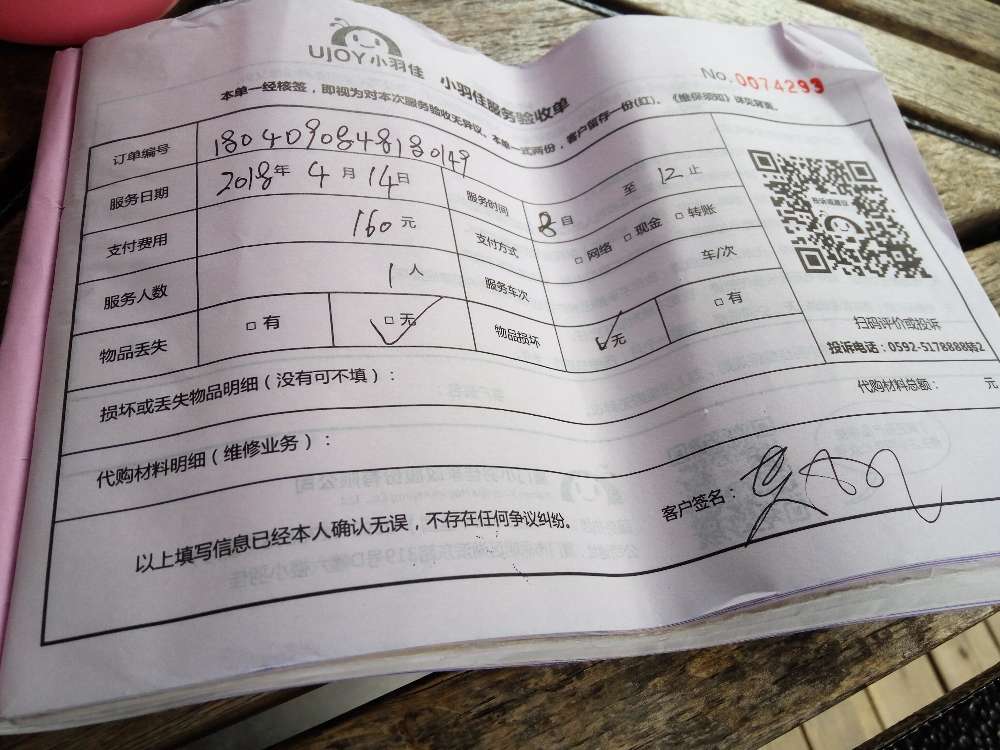 UJOY小羽佳 小羽佳服务验收单
No.0074293
本单一经核签，即视为对本次服务验收无异议，本单一式两份，客户留存一份(红)。《维保须知》详见背面。
订单编号 1804090848180149
服务日期 2018年 4 月 14 日 服务时间 8 自 至 12 止
支付费用 160 元 支付方式 □ 网络 □ 现金 □ 转账
服务人数 1 人 服务车次 车/次
物品丢失 □ 有 □ 无 物品损坏 □ 无 □ 有
投诉或建议
扫码评价或投诉
投诉电话：0592-5178888转2
损坏或丢失物品明细（没有可不填）：
代购材料明细（维修业务）： 代购材料总额： 元
以上填写信息已经本人确认无误，不存在任何争议纠纷。 客户签名：